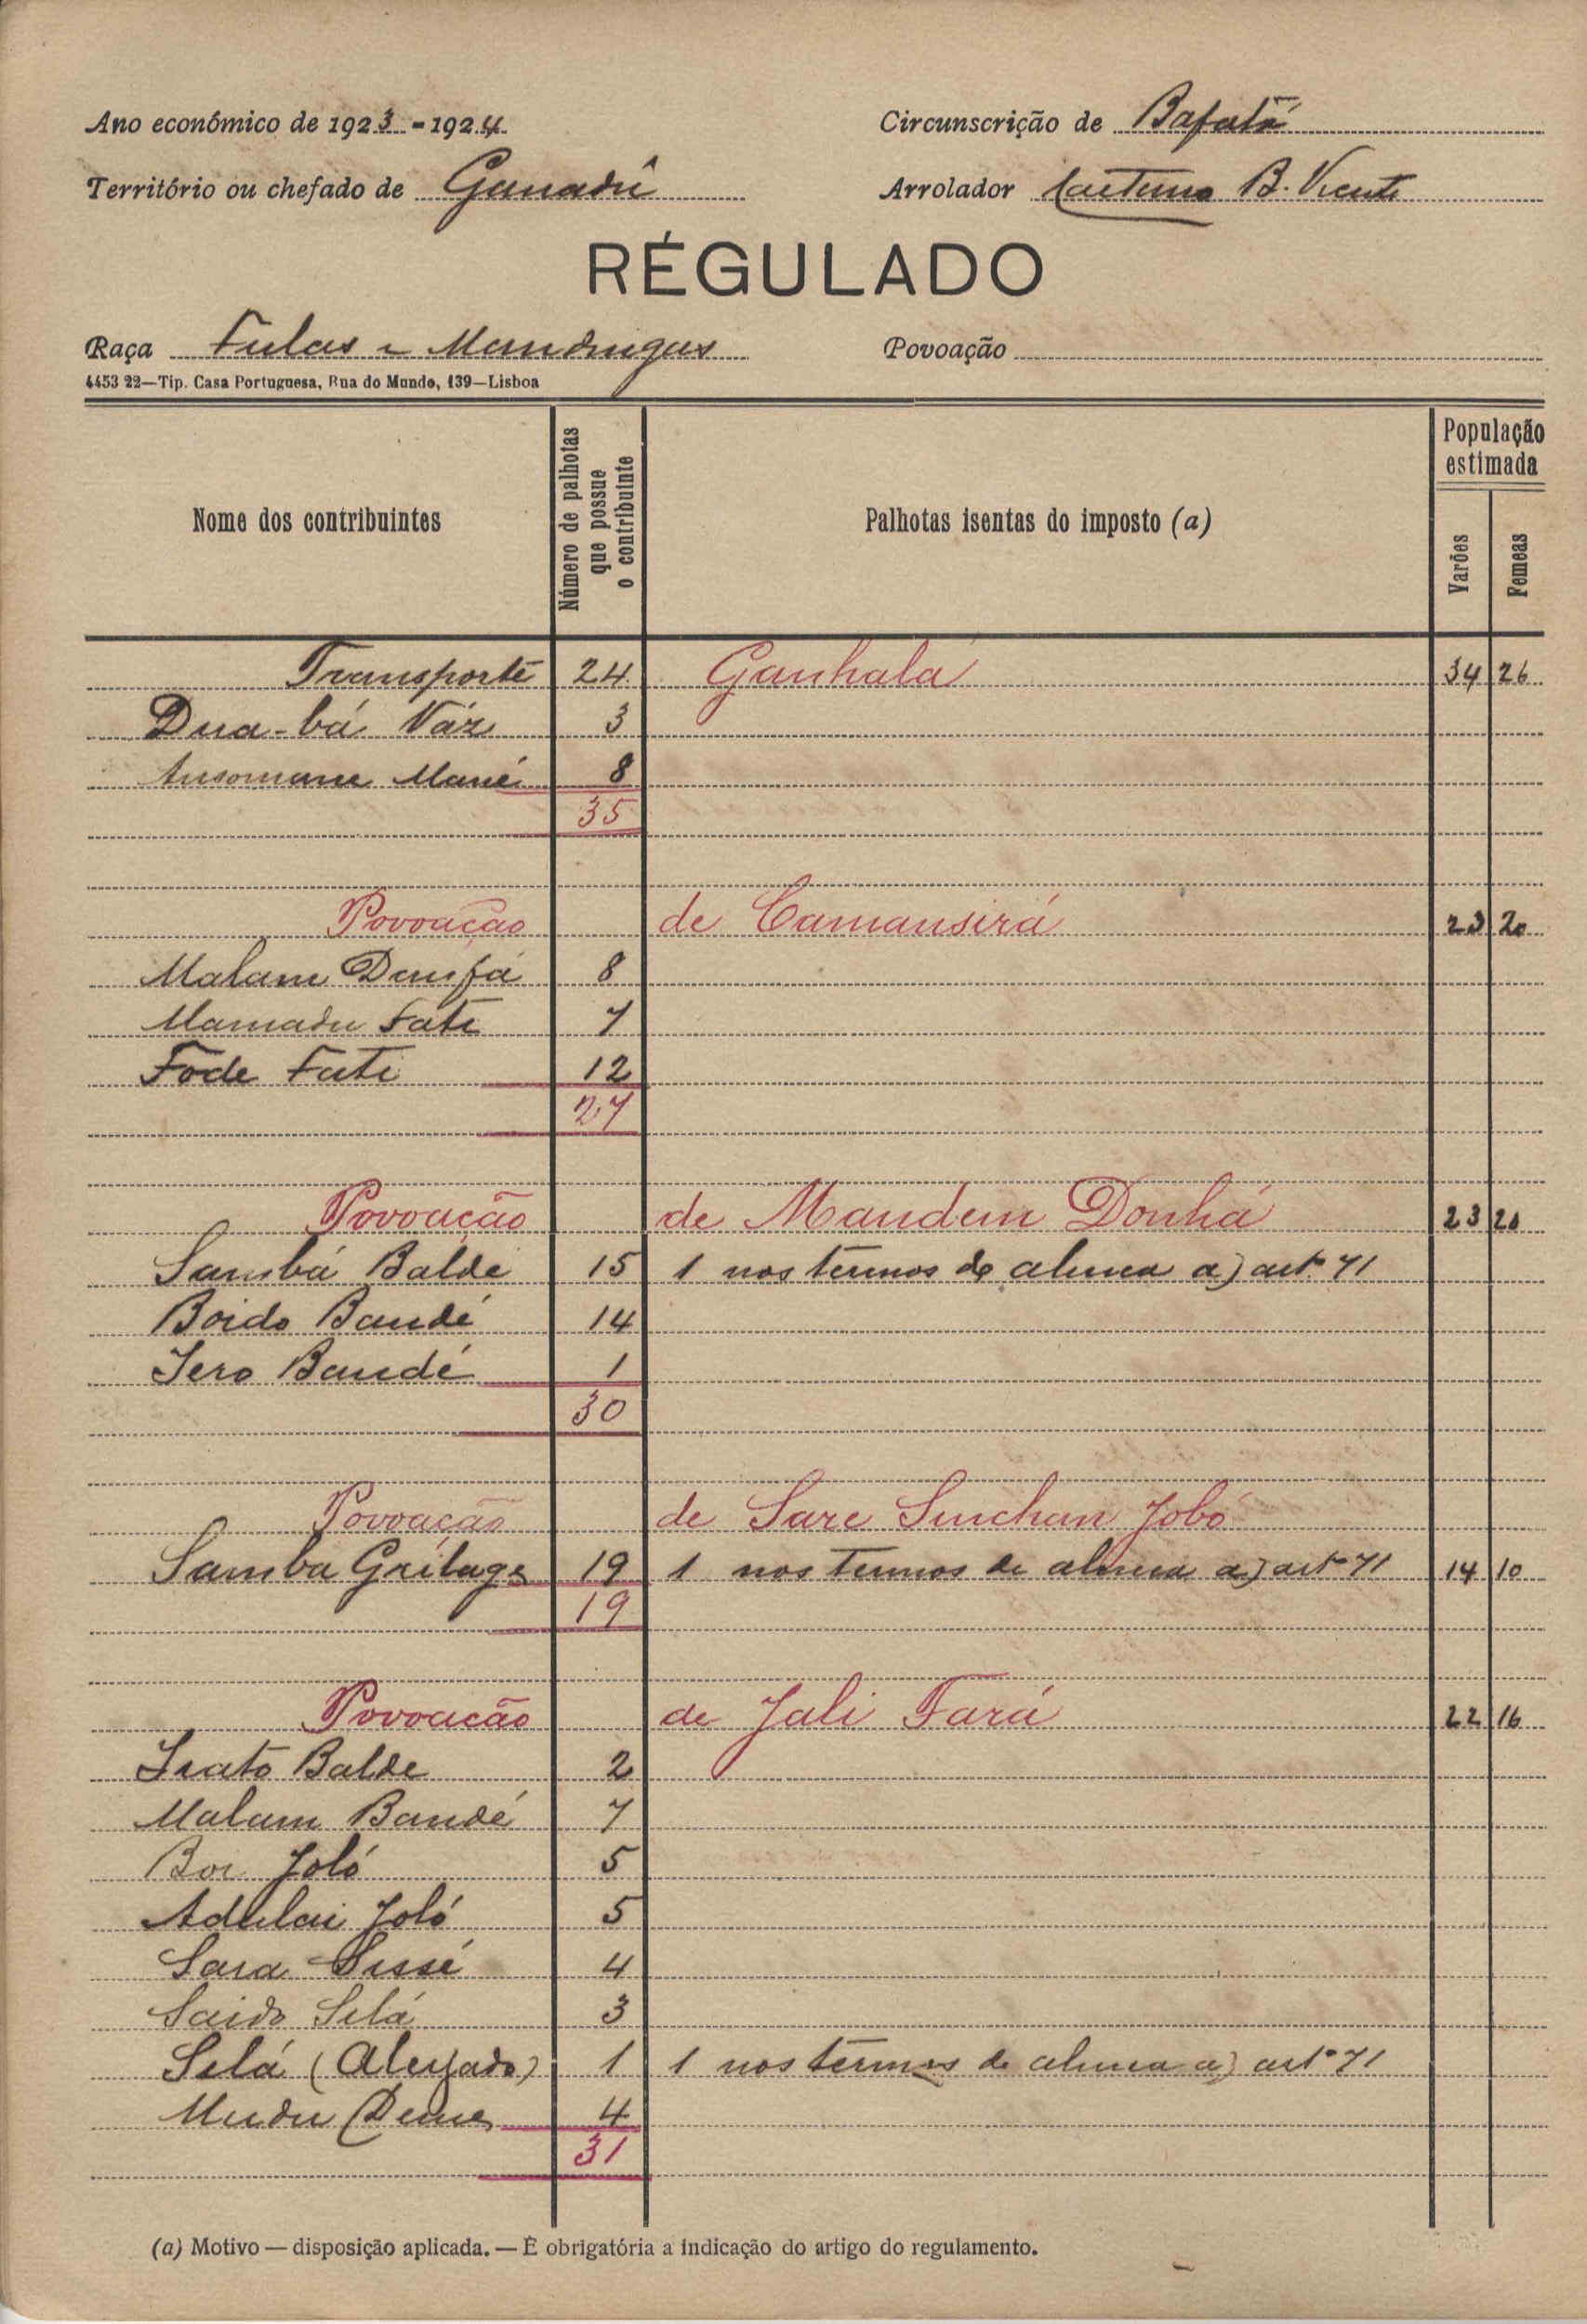 Ano económico de 1923 - 1924
Circunscrição de Bafatá
Território ou chefado de Ganadú
Arrolador Caetano B. Vicente
RÉGULADO
Raça Fulas e Mandingas
Povoação
4453 22—Tip. Casa Portuguesa, Rua do Mundo, 139—Lisboa
Nome dos contribuintes
Número de palhotas que possue o contribuinte
Palhotas isentas do imposto (a)
População estimada
Varões
Femeas
Transporte 24 Ganhala 34 26
Dua-bá Váz 3
Ansomane Mané 8
35
Povoação de Camansirá 23 20
Malam Danfá 8
Mamadu Fati 7
Fode Fati 12
27
Povoação de Mandem Donhá 23 20
Sambá Balde 15 1 nos termos de alinea a) artº 71
Boido Bandé 14
Iero Bandé 1
30
Povoação de Sare Sinchan Jobó
Samba 19 1 nos termos de alinea a) artº 71 14 10
19
Povoação de Jali Fará 22 16
Balde 2
Malam Bandé 7
Boi Joló 5
Adulai Joló 5
Sara Sissé 4
Saido Silá 3
Silá (Aleijado) 1 1 nos termos de alinea a) artº 71
Mudu Deme 4
31
(a) Motivo — disposição aplicada. — É obrigatória a indicação do artigo do regulamento.